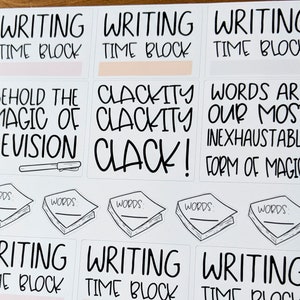 WRITING
TIME BLOCK
WRITING
TIME BLOCK
WRITING
TIME BLOCK
EHOLD THE
MAGIC OF
EVISION
CLACKITY
CLACKITY
CLACK!
WORDS AR
OUR MOST
INEXHAUSTABL
FORM OF MAGIC
WORDS:
WORDS:
WORDS:
WORDS:
WRITING
TIME BLOCK
WRITING
TIME BLOCK
WRITING
TIME BLOCK